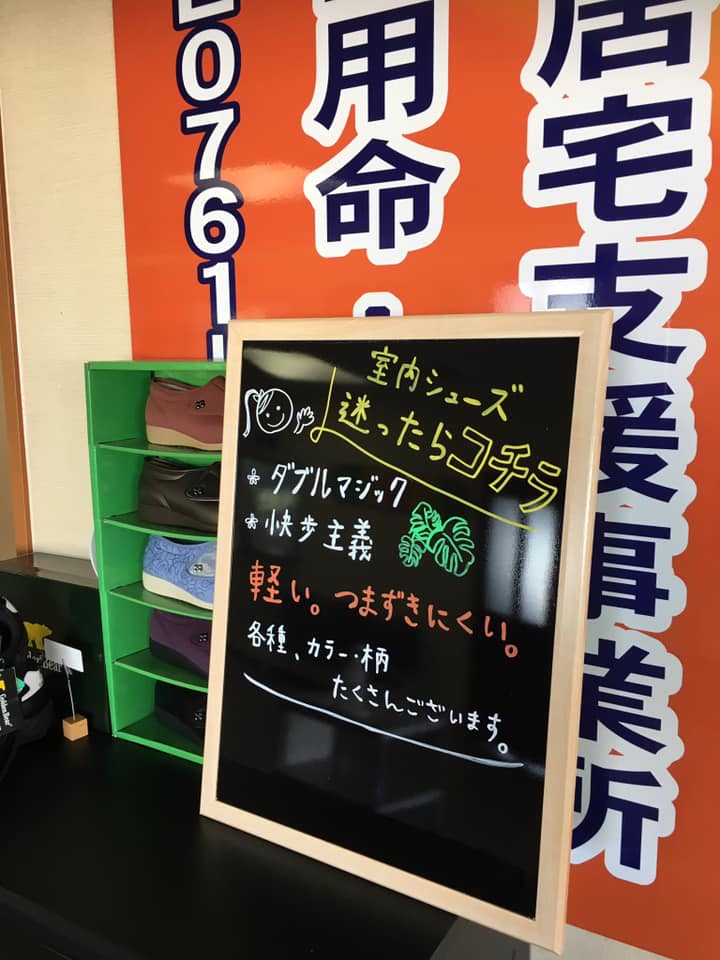 居宅支援事業所
用命
0761
室内シューズ
迷ったらコチラ
* ダブルマジック
* 快歩主義
軽い。つまずきにくい。
各種、カラー・柄
たくさんございます。
Golden Bear